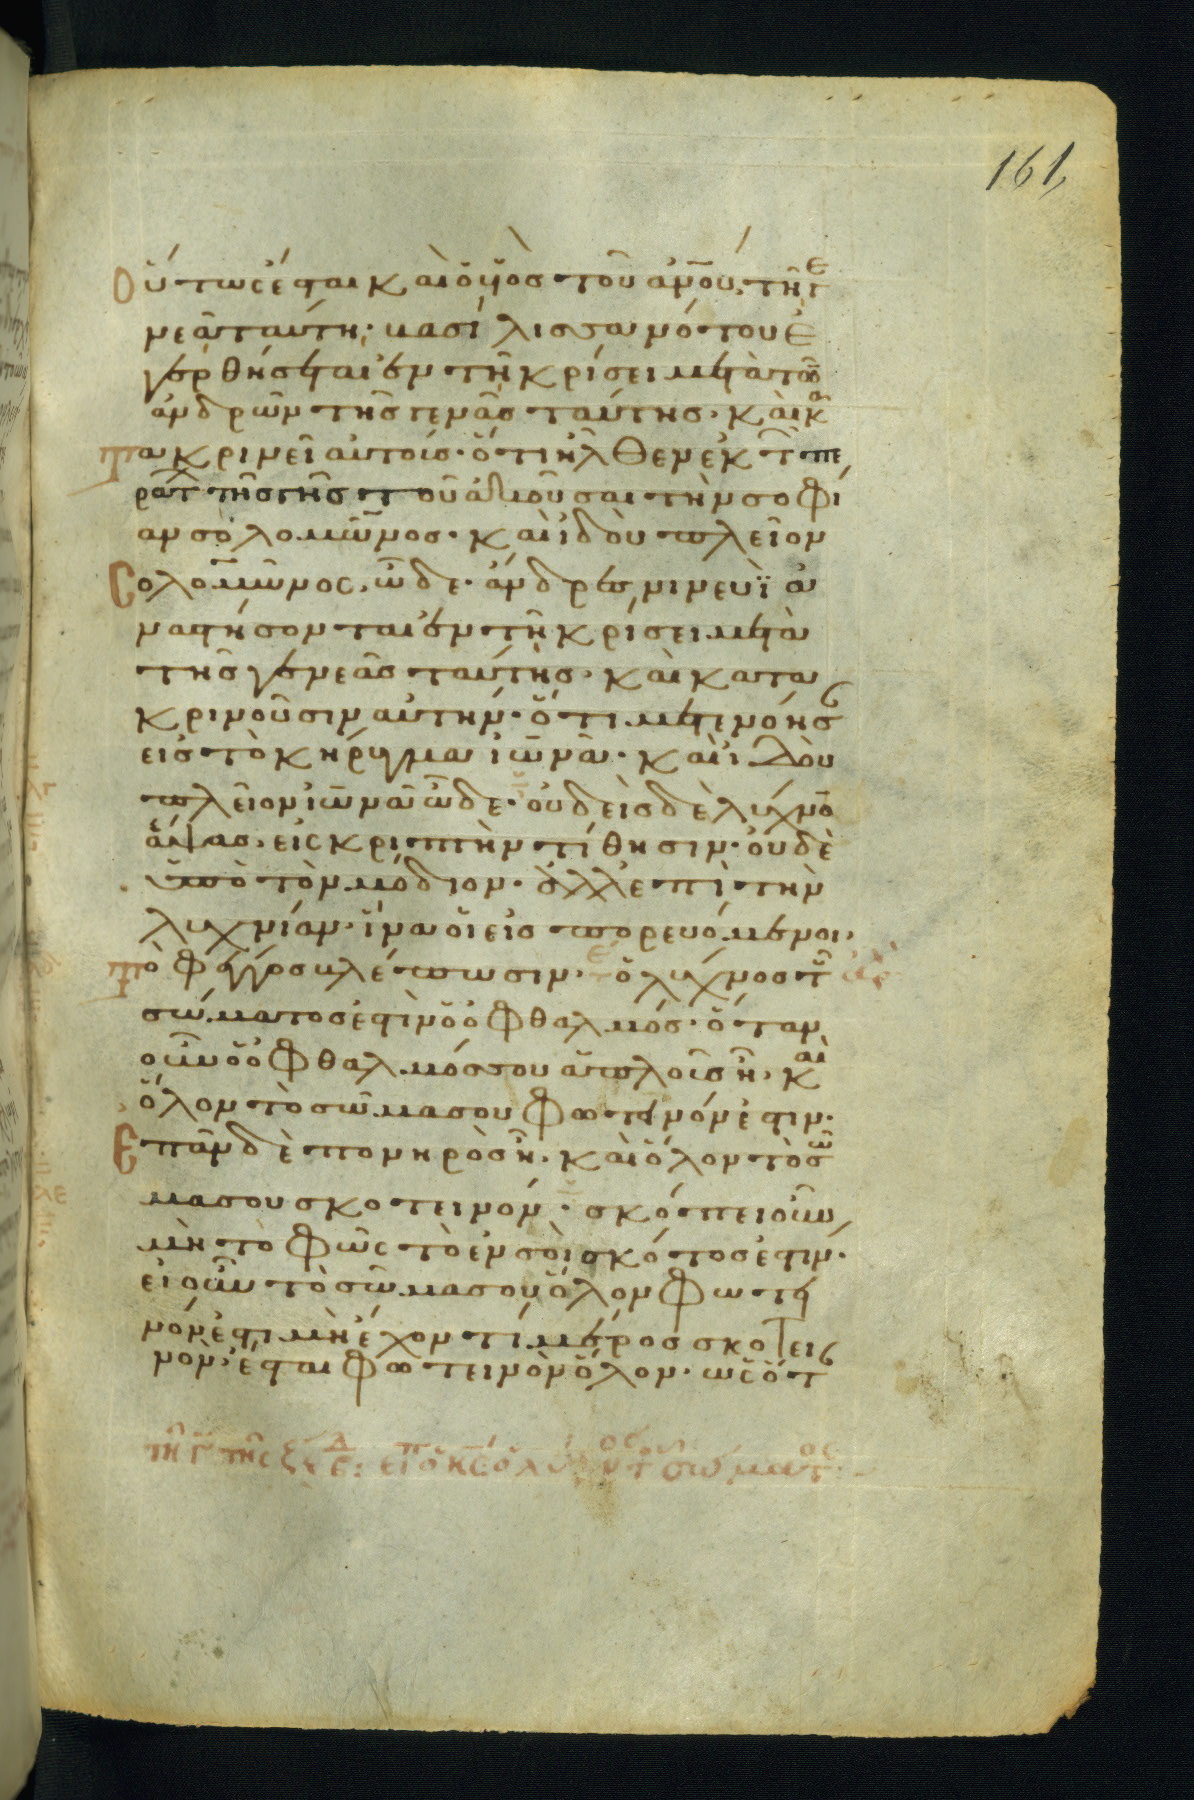 161
Οὕτως ἔσται καὶ ὁ υἱὸς τοῦ ἀνοῦ. τῆ γε
νεᾶ ταύτη· βασίλισσα νότου ἐ
γερθήσεται ἐν τῆ κρίσει μετὰ τῶν
ἀνδρῶν τῆς γενεᾶς ταύτης. καὶ κα
τακρινεῖ αὐτούς. ὅτι ἦλθεν ἐκ τῶν πε
ράτων τῆς γῆς τοῦ ἀκοῦσαι τὴν σοφί
αν σολομῶνος. καὶ ἰδοὺ πλεῖον
Σολομῶνος. ὧδε. ἄνδρες νινευῒ ἀ
ναστήσονται ἐν τῆ κρίσει μετὰ
τῆς γενεᾶς ταύτης. καὶ κατα
κρινοῦσιν αὐτήν. ὅτι μετενόησαν
εἰς τὸ κήρυγμα ἰωνᾶ. καὶ ἰδοὺ
πλεῖον ἰωνᾶ ὧδε. οὐδεὶς δὲ λύχνον
ἅψας. εἰς κρυπτὴν τίθησιν. οὐδὲ
ὑπὸ τὸν μόδιον. ἀλλ' ἐπὶ τὴν
λυχνίαν. ἵνα οἱ εἰσπορευόμενοι.
τὸ φέγγος βλέπωσιν. ὁ λύχνος τοῦ
σώματός ἐστιν ὁ ὀφθαλμός. ὅταν
οὖν ὁ ὀφθαλμός σου ἁπλοῦς ἦ. καὶ
ὅλον τὸ σῶμα σου φωτεινόν ἐστιν.
Ἐπὰν δὲ πονηρὸς ἦ. καὶ ὅλον τὸ σῶ
μα σου σκοτεινόν. σκόπει οὖν
μὴ τὸ φῶς τὸ ἐν σοὶ σκότος ἐστιν.
εἰ οὖν τὸ σῶμα σου ὅλον φωτει
νόν ἐστι μὴ ἔχον τι μέρος σκοτει
νὸν. ἔσται φωτεινὸν ὅλον. ὡς ὅτ